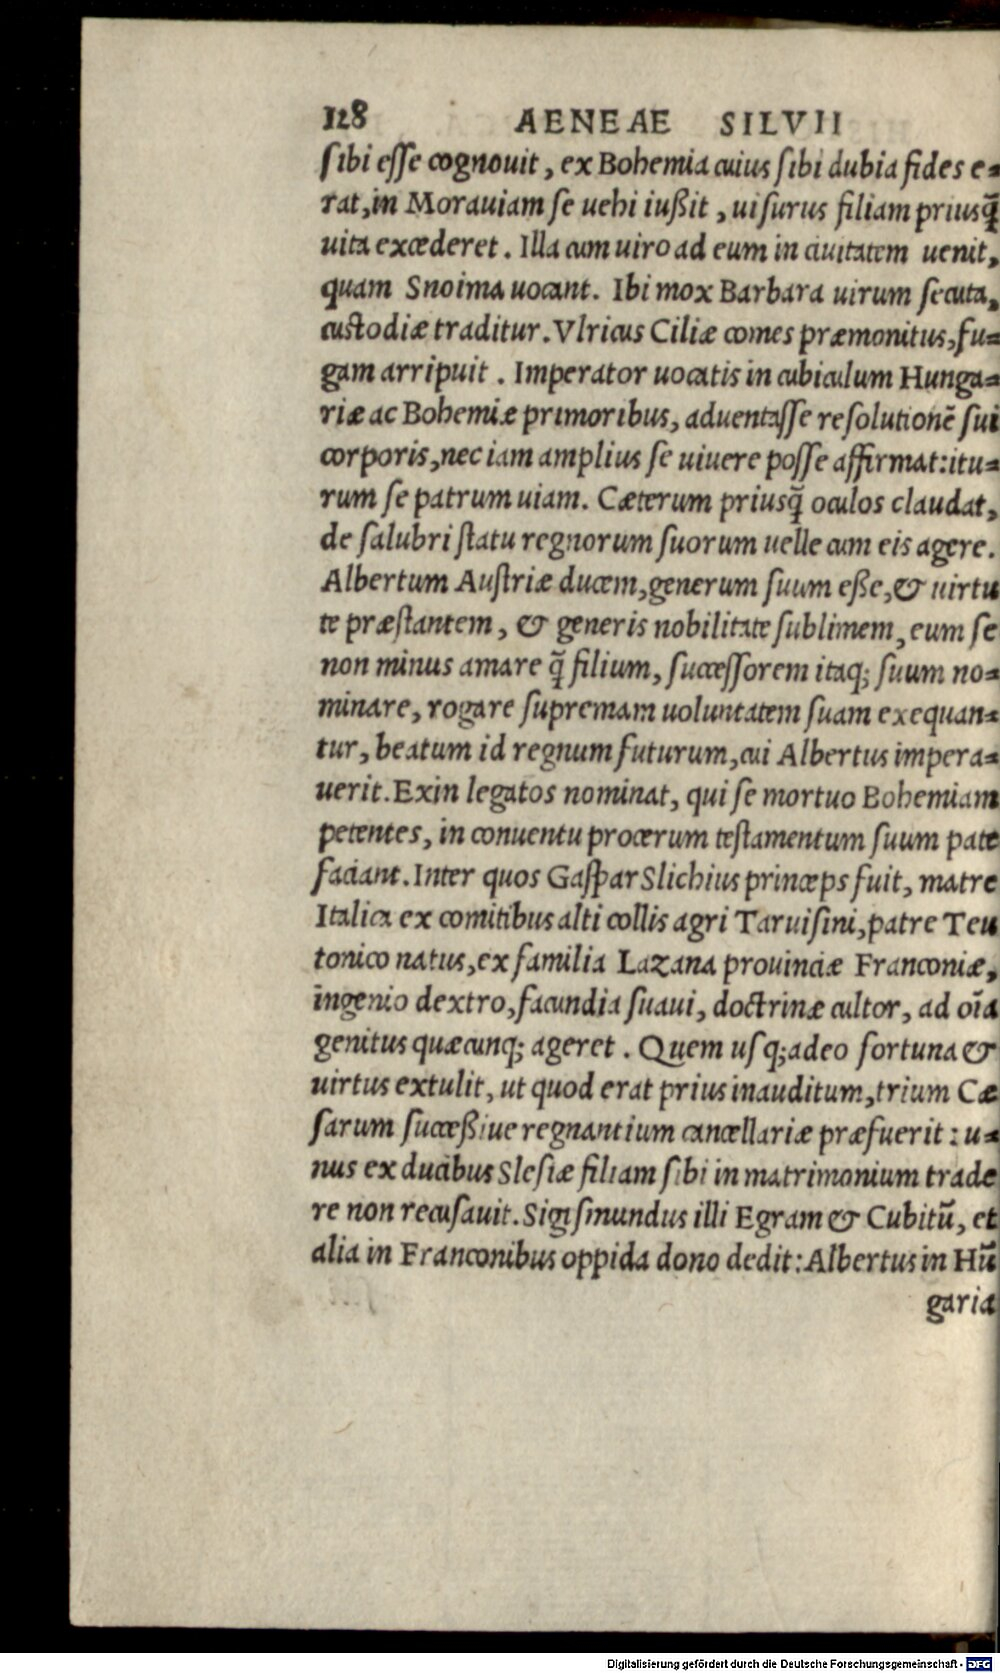 128 AENEAE SILVII
ſibi eſſe cognouit, ex Bohemia cuius ſibi dubia fides e-
rat, in Morauiam ſe uehi iußit, uiſurus filiam priusq̃
uita excederet. Illa cum uiro ad eum in ciuitatem uenit,
quam Snoima uocant. Ibi mox Barbara uirum ſecuta,
cuſtodiæ traditur. Vlricus Ciliæ comes præmonitus, fu-
gam arripuit. Imperator uocatis in cubiculum Hunga-
riæ ac Bohemiæ primoribus, aduentaſſe reſolutionẽ ſui
corporis, nec iam amplius ſe uiuere poſſe affirmat: itu-
rum ſe patrum uiam. Cæterum priusq̃ oculos claudat,
de ſalubri ſtatu regnorum ſuorum uelle cum eis agere.
Albertum Auſtriæ ducem, generum ſuum eße, & uirtu
te præſtantem, & generis nobilitate ſublimem, eum ſe
non minus amare q̃ filium, ſucceſſorem itaq; ſuum no-
minare, rogare ſupremam uoluntatem ſuam exequan-
tur, beatum id regnum futurum, cui Albertus impera-
uerit. Exin legatos nominat, qui ſe mortuo Bohemiam
petentes, in conuentu procerum teſtamentum ſuum pate
faciant. Inter quos Gaſpar Slichius princeps fuit, matre
Italica ex comitibus alti collis agri Taruiſini, patre Teu
tonico natus, ex familia Lazana prouinciæ Franconiæ,
ingenio dextro, facundia ſuaui, doctrinæ cultor, ad oĩa
genitus quæcunq; ageret. Quem uſq; adeo fortuna &
uirtus extulit, ut quod erat prius inauditum, trium Cæ
ſarum ſucceßiue regnantium cancellariæ præfuerit: u-
nus ex ducibus Sleſiæ filiam ſibi in matrimonium trade
re non recuſauit. Sigiſmundus illi Egram & Cubitũ, et
alia in Franconibus oppida dono dedit: Albertus in Hũ
garia
Digitalisierung gefördert durch die Deutsche Forschungsgemeinschaft - DFG